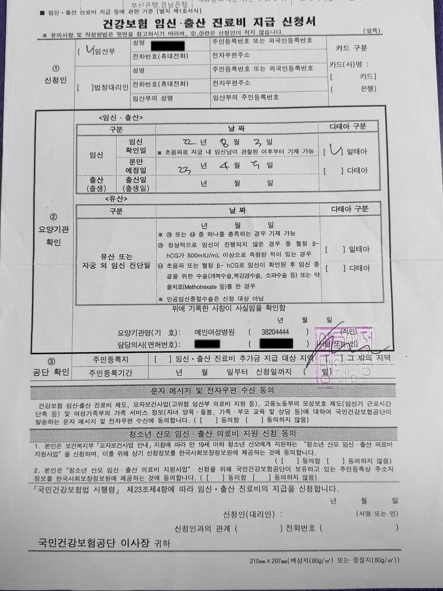 부산은행,경남은행
■ 임신ㆍ출산 진료비 지급 등에 관한 기준 [별지 제1호서식]
건강보험 임신ㆍ출산 진료비 지급 신청서
※ 유의사항 및 작성방법은 뒷면을 참고하시기 바라며, ②,③란은 신청인이 적지 않습니다. (앞쪽)
① 신청인
[ ]임산부
성명
주민등록번호 또는 외국인등록번호
전화번호(휴대전화)
전자우편주소
[ ]법정대리인
성명
주민등록번호 또는 외국인등록번호
전화번호(휴대전화)
전자우편주소
임산부의 성명
임산부의 주민등록번호
카드 구분
카드(사)명 :
[ 카드]
( 은행)
② 요양기관 확인
<임신ㆍ출산>
구분 날 짜 다태아 구분
임신
임신 확인일
22 년 8 월 3 일
※ 초음파로 자궁 내 임신낭이 관찰된 이후부터 기재 가능
분만 예정일
23 년 4 월 5 일
출산 (출생)
출산일 (출생일)
년 월 일
[ ] 일태아
[ ] 다태아
<유산>
구분 날 짜 다태아 구분
유산 또는 자궁 외 임신 진단일
년 월 일
※ ㉮ 또는 ㉯ 중 하나를 충족하는 경우 기재 가능
㉮ 정상적으로 임신이 진행되지 않은 경우 중 혈청 β-hCG가 500mIU/mL 이상으로 측정된 적이 있는 경우
㉯ 초음파 또는 혈청 β- hCG로 임신이 확인된 후 임신 종결을 위한 수술(개복수술,복강경수술, 소파수술 등) 또는 약물치료(Methotrexate 등)를 한 경우
※ 인공임신중절수술은 신청 대상 아님
[ ] 일태아
[ ] 다태아
위에 기록한 사항이 사실임을 확인함
년 월 일
요양기관명(기 호): 에인여성병원 ( 38204444 ) (직인)
담당의사(면허번호): ( ) (서명 또는 인)
③ 공단 확인
주민등록지 [ ] 임신ㆍ출산 진료비 추가금 지급 대상 지역 [ ] 그 밖의 지역
주민등록기간 년 월 일부터 신청일까지 일( )
문자 메시지 및 전자우편 수신 동의
건강보험 임신ㆍ출산 진료비 제도, 모자보건사업(고위험 임산부 의료비 지원 등), 고용노동부의 모성보호 제도(임신기 근로시간 단축 등) 및 여성가족부의 가족 서비스 정보(자녀 양육ㆍ돌봄, 가족ㆍ부모 교육 및 상담 등)에 대하여 국민건강보험공단이 발송하는 문자 메시지 및 전자우편 수신에 동의합니다. ( [ ] 동의함 [ ] 동의하지 않음)
청소년 산모 임신ㆍ출산 의료비 지원 신청 동의
1. 본인은 보건복지부 「모자보건사업 안내」지침에 따라 만 19세 이하 청소년 산모에게 지원하는 "청소년 산모 임신ㆍ출산 의료비 지원사업" 을 신청하며, 이를 위해 상기 신청정보를 한국사회보장정보원에 제공하는 것에 동의합니다.
( [ ] 동의함 [ ] 동의하지 않음 )
2. 본인은 "청소년 산모 임신ㆍ출산 의료비 지원사업" 신청을 위해 국민건강보험공단이 보유하고 있는 주민등록상 주소지 정보를 한국사회보장정보원에 제공하는 것에 동의합니다. ( [ ] 동의함 [ ] 동의하지 않음 )
「국민건강보험법 시행령」 제23조제4항에 따라 임신ㆍ출산 진료비의 지급을 신청합니다.
년 월 일
신청인(대리인) : (서명 또는 인)
신청인과의 관계 ( ) 전화번호 ( )
국민건강보험공단 이사장 귀하
210㎜×297㎜(백상지(80g/㎡) 또는 중질지(80g/㎡)